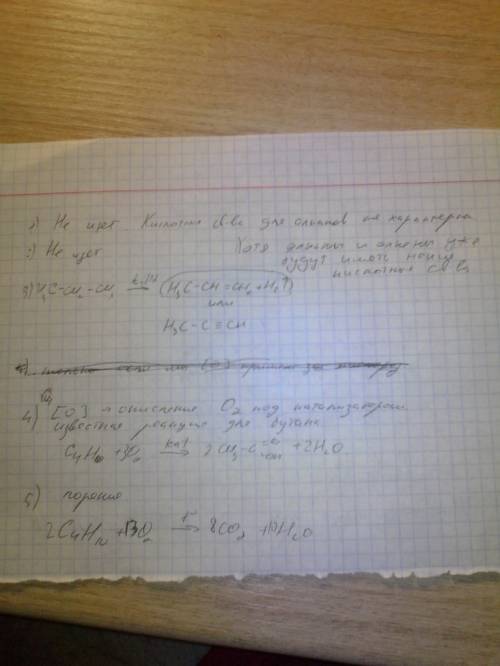 1) Не идет. Кислотные св-ва для алканов не характерны
2) Не идет Хотя алкины и алкены уже
будут иметь
кислотные св-ва
3) H₃C-CH₂-CH₃ → (H₃C-CH=CH₂+H₂↑)
или
H₃C-C≡CH
4) [O] - окисление O₂ под катализатором
известная реакция для бутана
C₄H₁₀ + O₂ →kat 2CH₃-C=O -OH + 2H₂O
5) горение
2C₄H₁₀ + 13O₂ →t 8CO₂ + 10H₂O